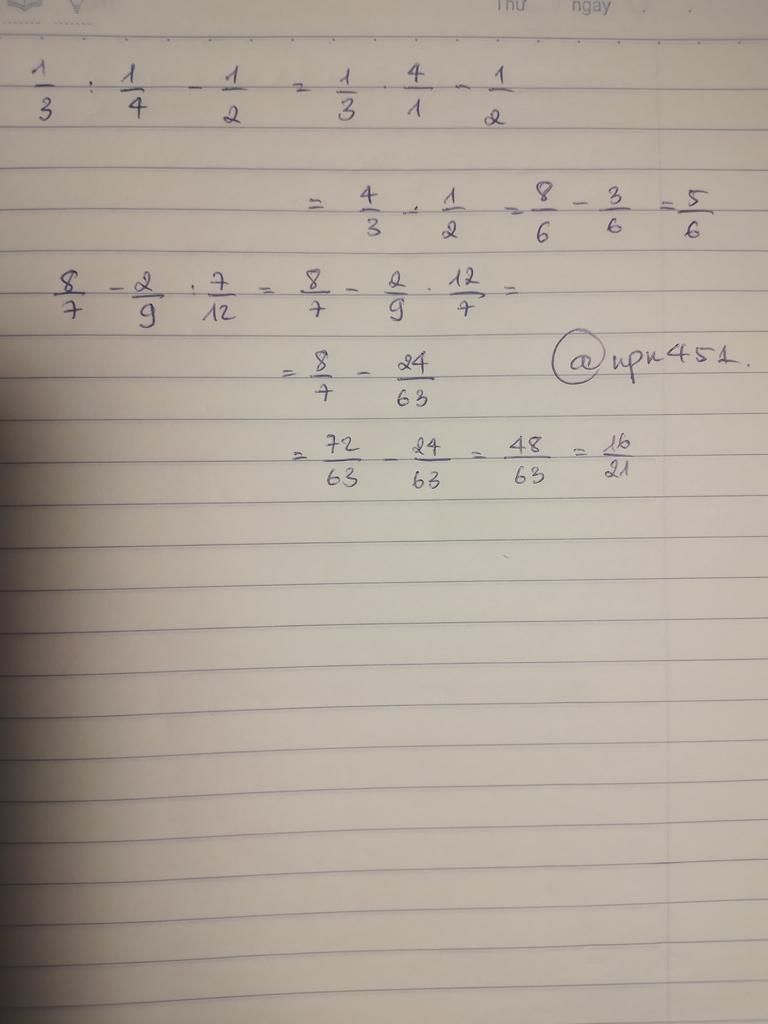 Thứ ngày . .
1/3 : 1/4 - 1/2 = 1/3 . 4/1 - 1/2
= 4/3 - 1/2 = 8/6 - 3/6 = 5/6
8/7 - 2/9 : 7/12 = 8/7 - 2/9 . 12/7 =
= 8/7 - 24/63
@npn451.
= 72/63 - 24/63 = 48/63 = 16/21